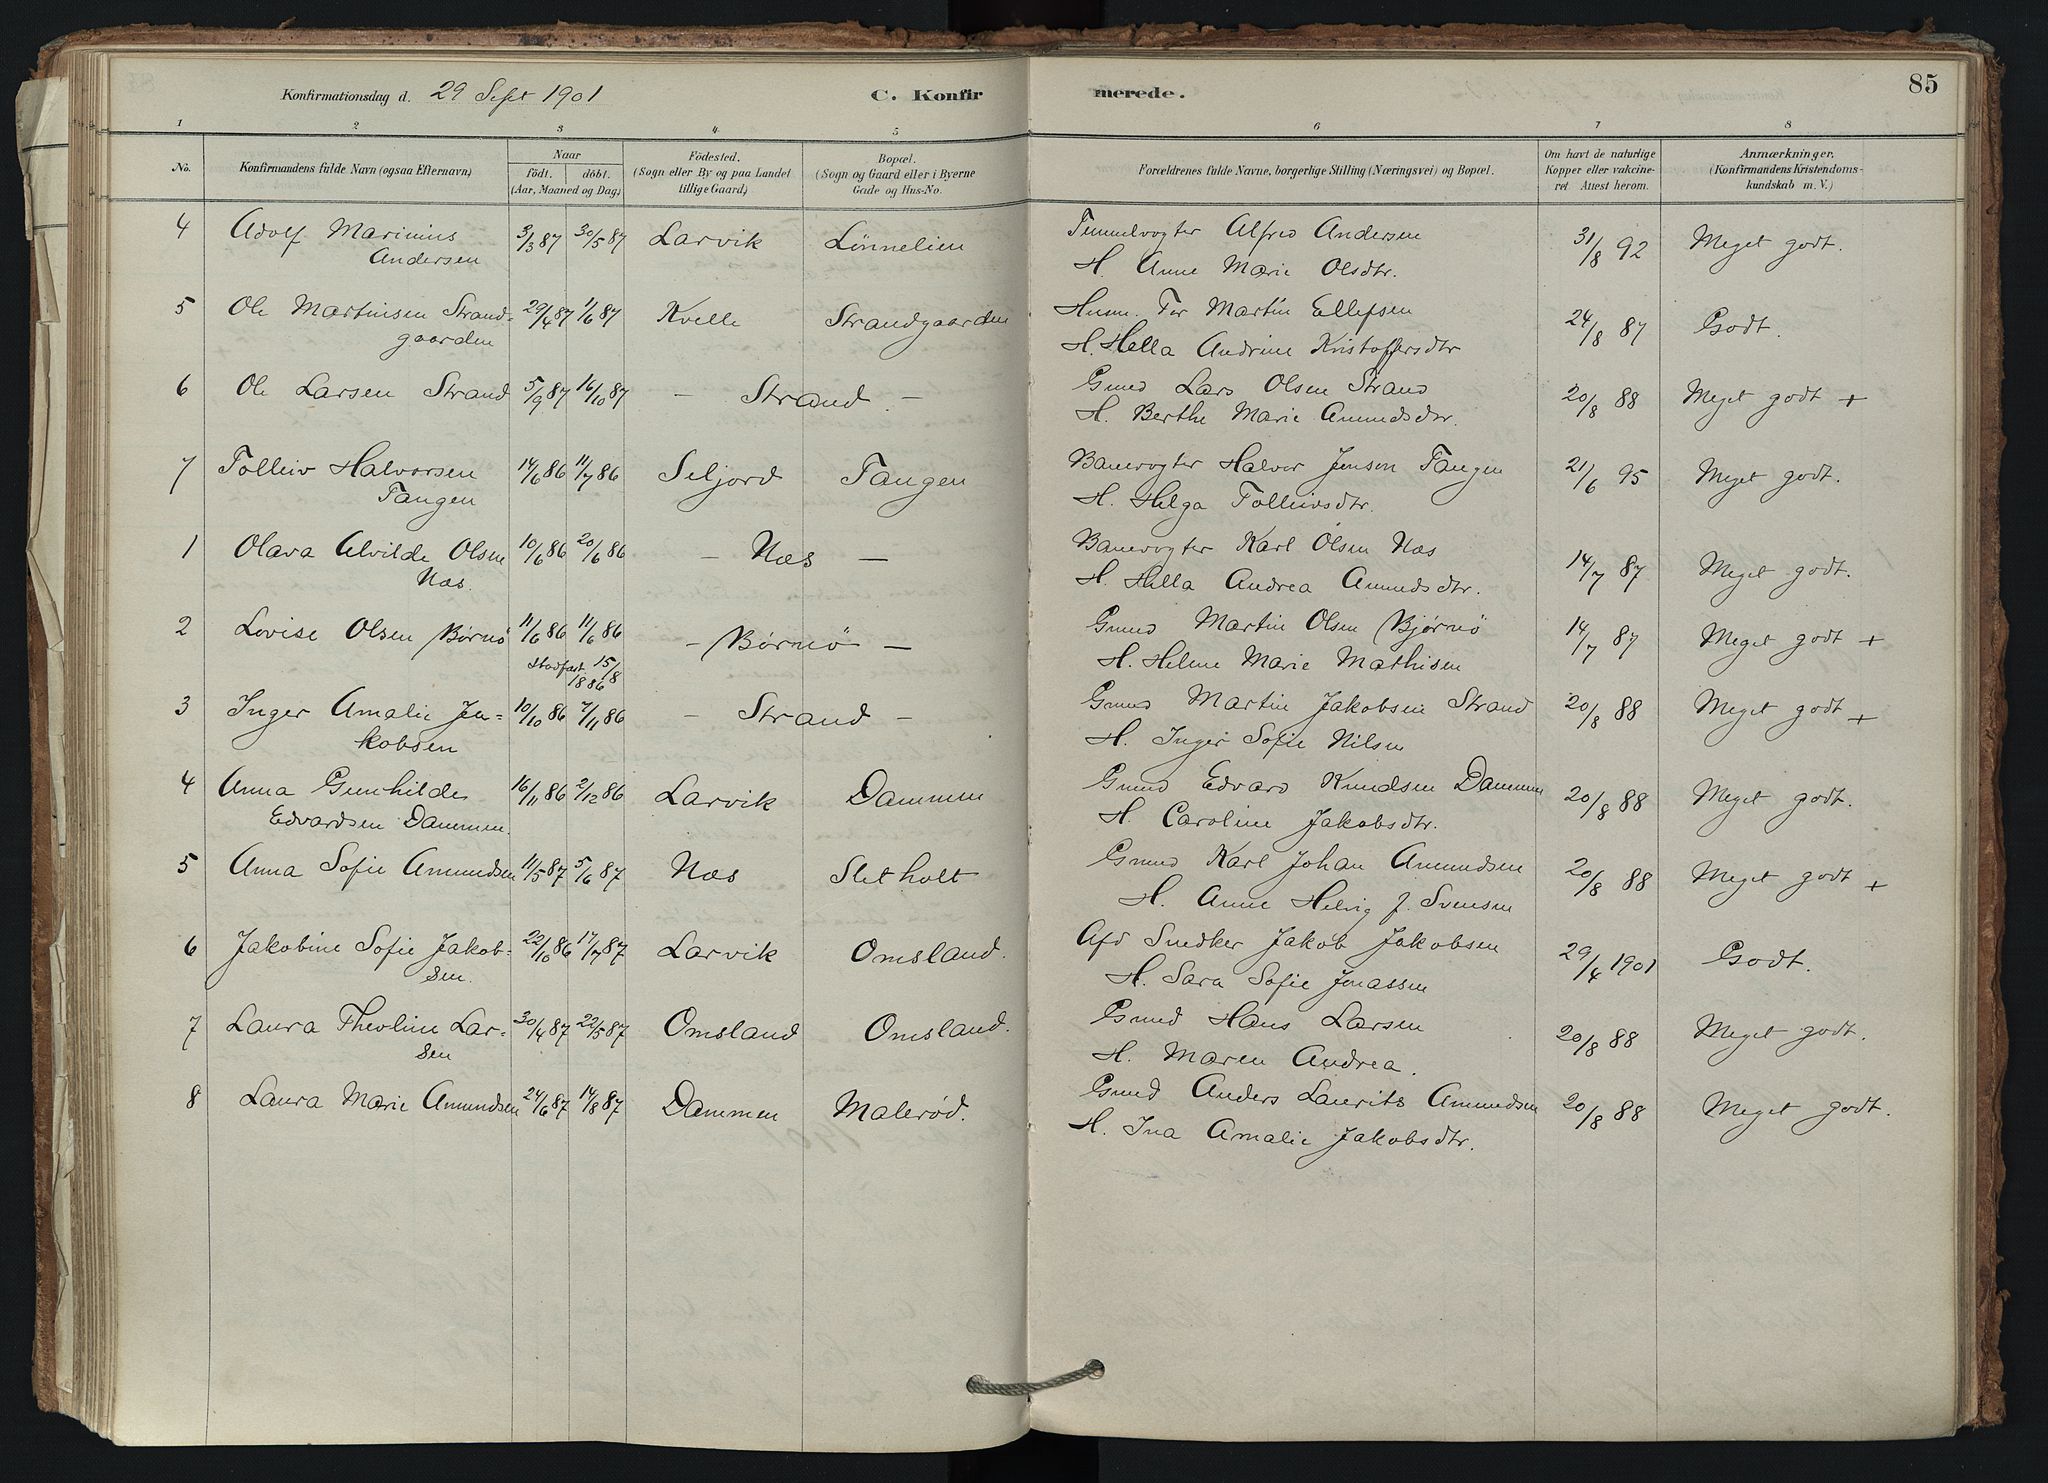 Konfirmationsdag d. 29 Sept 1901 C. Konfirmerede. 85
1 2 3 4 5 6 7 8
No. Konfirmandens fulde Navn (ogsaa Efternavn) Naar födt. döbt. (Aar, Maaned og Dag) Födested. (Sogn eller By og paa Landet tillige Gaard) Bopæl. (Sogn og Gaard eller i Byerne Gade og Hus-No. Forældrenes fulde Navne, borgerlige Stilling (Næringsvei) og Bopæl. Om havt de naturlige Kopper eller vakcineret Attest herom. Anmærkninger. (Konfirmandens Kristendomskundskab m. V.)
4 Adolf Marinius 3/3 87 30/5 87 Larvik Lønnelien Tunnelvogter Alfred Andersen 31/8 92 Meget godt.
Andersen H. Anne Marie Olsdtr.
5 Ole Martinsen Strand- 29/4 87 11/6 87 Kvelle Strandgaarden Husm. For Martin Ellefsen 24/8 87 Godt.
gaarden H. Hella Andrine Kristoffersdtr
6 Ole Larsen Strand 5/9 87 16/10 87 – Strand – Gmd Lars Olsen Strand 20/8 88 Meget godt +
H. Berthe Marie Amundsdtr.
7 Tolleiv Halvorsen 14/6 86 11/7 86 Seljord Tangen Banevogter Halvor Jensen Tangen 21/6 95 Meget godt.
Tangen H. Helga Tolleivsdtr.
1 Olava Alvilde Olsen 10/6 86 20/6 86 – Næs – Banevogter Karl Olsen Næs 14/7 87 Meget godt.
Næs. H. Hella Andrea Amundsdtr.
2 Lovise Olsen Børnö 11/6 86 11/6 86 – Børnö – Gmd Martin Olsen Bjørnö 14/7 87 Meget godt +
Stadfæst 15/8 1886 H. Helene Marie Mathisen
3 Inger Amalie Ja- 10/10 86 7/11 86 – Strand – Gmd Martin Jakobsen Strand 20/8 88 Meget godt +
kobsen H. Inger Sofie Nilsen
4 Anna Gunhilde 16/11 86 2/12 86 Larvik Dammen Gmd Edvard Knudsen Dammen 20/8 88 Meget godt.
Edvardsen Dammen. H. Caroline Jakobsdtr.
5 Anna Sofie Amundsen 11/5 87 5/6 87 Næs Sletholt Gmd Karl Johan Amundsen 20/8 88 Meget godt +
H. Anne Helvig f. Svensen
6 Jakobine Sofie Jakob- 22/10 86 17/7 87 Larvik Omsland. Afd Snedker Jakob Jakobsen 29/4 1901 Godt.
sen. H. Sara Sofie Jonassen
7 Laura Theoline Lar- 30/4 87 22/5 87 Omsland Omsland. Gmd Hans Larsen 20/8 88 Meget godt.
sen H. Maren Andrea.
8 Laura Marie Amundsen 24/6 87 14/8 87 Dammen Malerød. Gmd Anders Laurits Amundsen 20/8 88 Meget godt.
H. Ina Amalie Jakobsdtr.